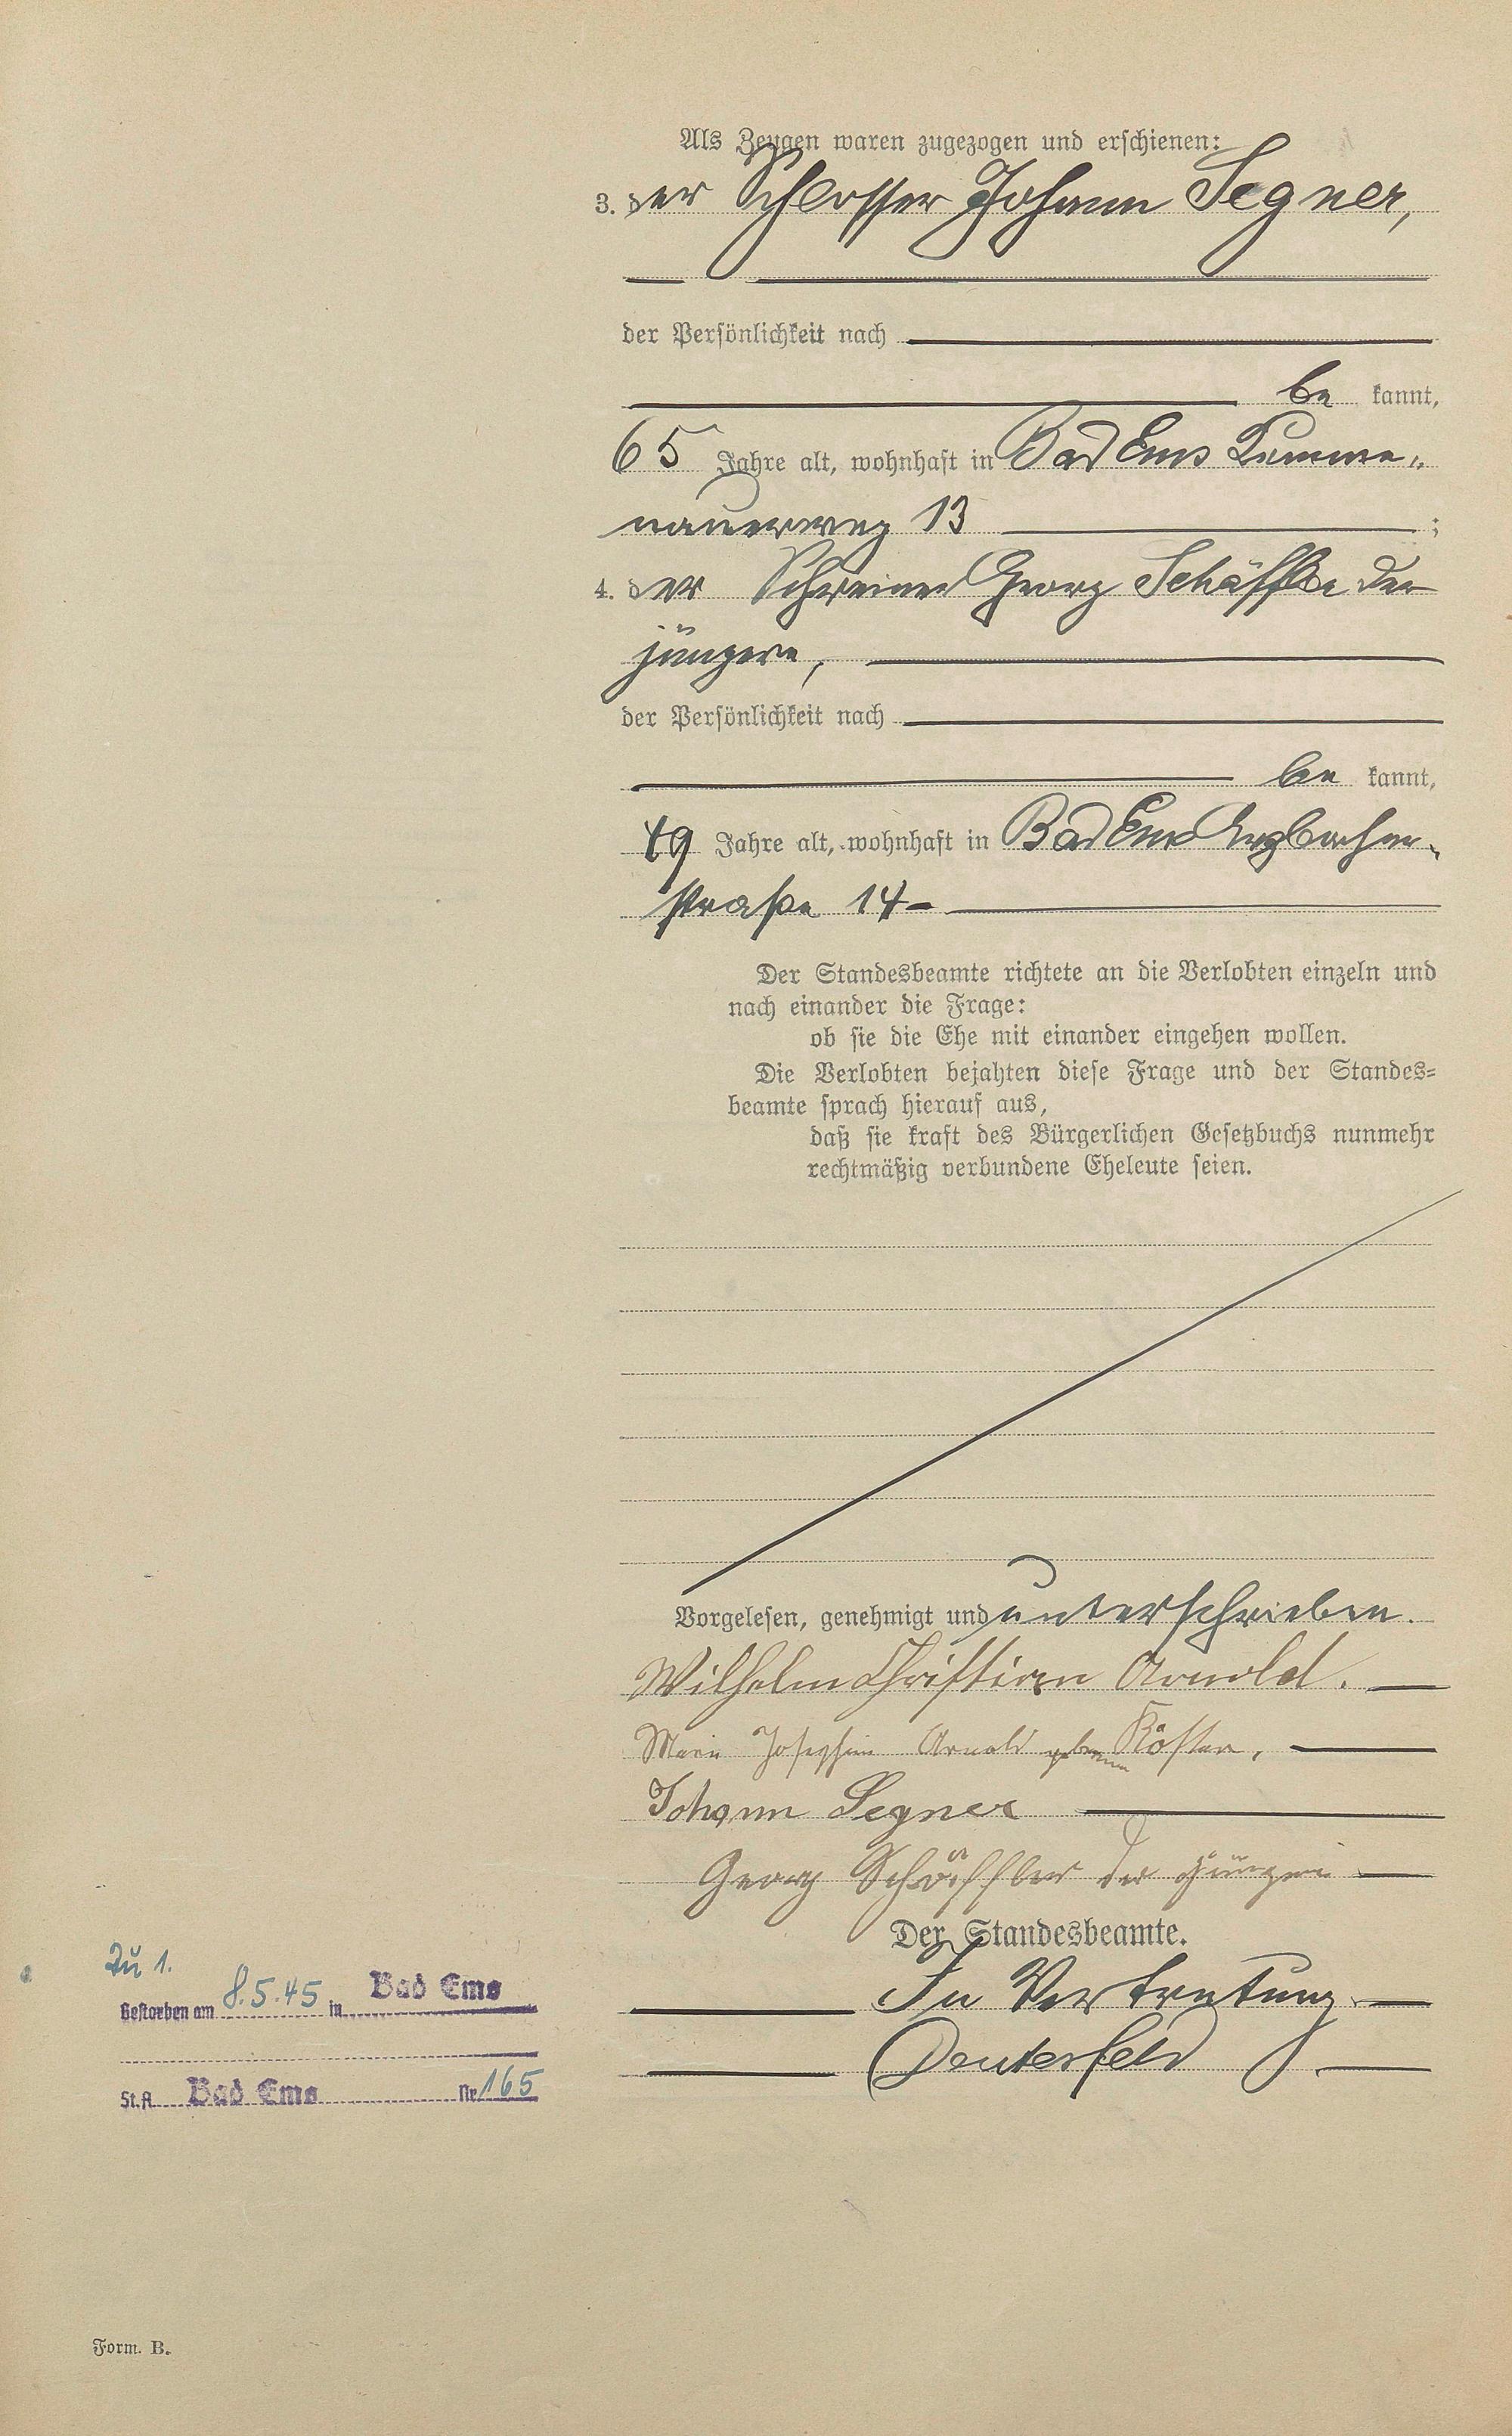 Als Zeugen waren zugezogen und erschienen:
3. der Schlosser Johann Segner,
der Persönlichkeit nach
be kannt,
65 Jahre alt, wohnhaft in Bad Ems Kemme-
nauerweg 13 ;
4. der Schreiner Georg Schäffler der
jüngere,
der Persönlichkeit nach
be kannt,
49 Jahre alt, wohnhaft in Bad Ems Arzbacher-
straße 14
Der Standesbeamte richtete an die Verlobten einzeln und
nach einander die Frage:
ob sie die Ehe mit einander eingehen wollen.
Die Verlobten bejahten diese Frage und der Standes-
beamte sprach hierauf aus,
daß sie kraft des Bürgerlichen Gesetzbuchs nunmehr
rechtmäßig verbundene Eheleute seien.
Vorgelesen, genehmigt und unterschrieben.
Wilhelm Christian Arnold.
Marie Josephine Arnold geborene Köster,
Johann Segner
Georg Schäffler der Jüngere
Der Standesbeamte.
In Vertretung
Deuterfeld
Zu 1.
Gestorben am 8.5.45 in Bad Ems
St.A. Bad Ems Nr. 165
Form. B.